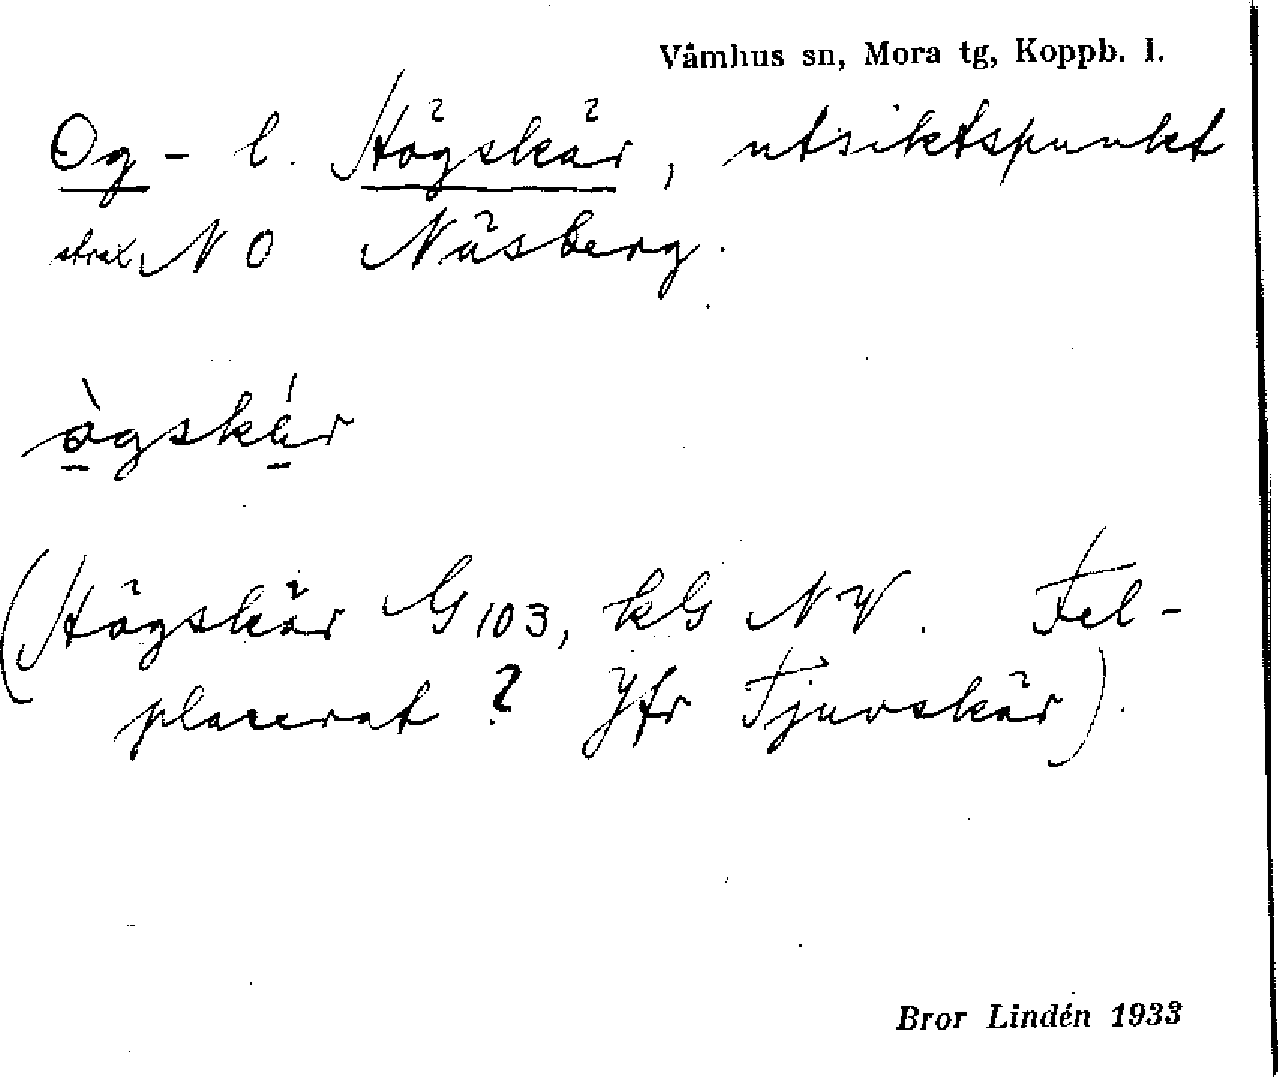 Våmhus sn, Mora tg, Koppb. l.
Og- l. Högskär, utsiktspunkt
strax NO Näsberg.
ò̠gskä̠́r
(Högskär G103, kG NV. Fel-
placerat? Jfr Tjuvskär).
Bror Lindén 1933